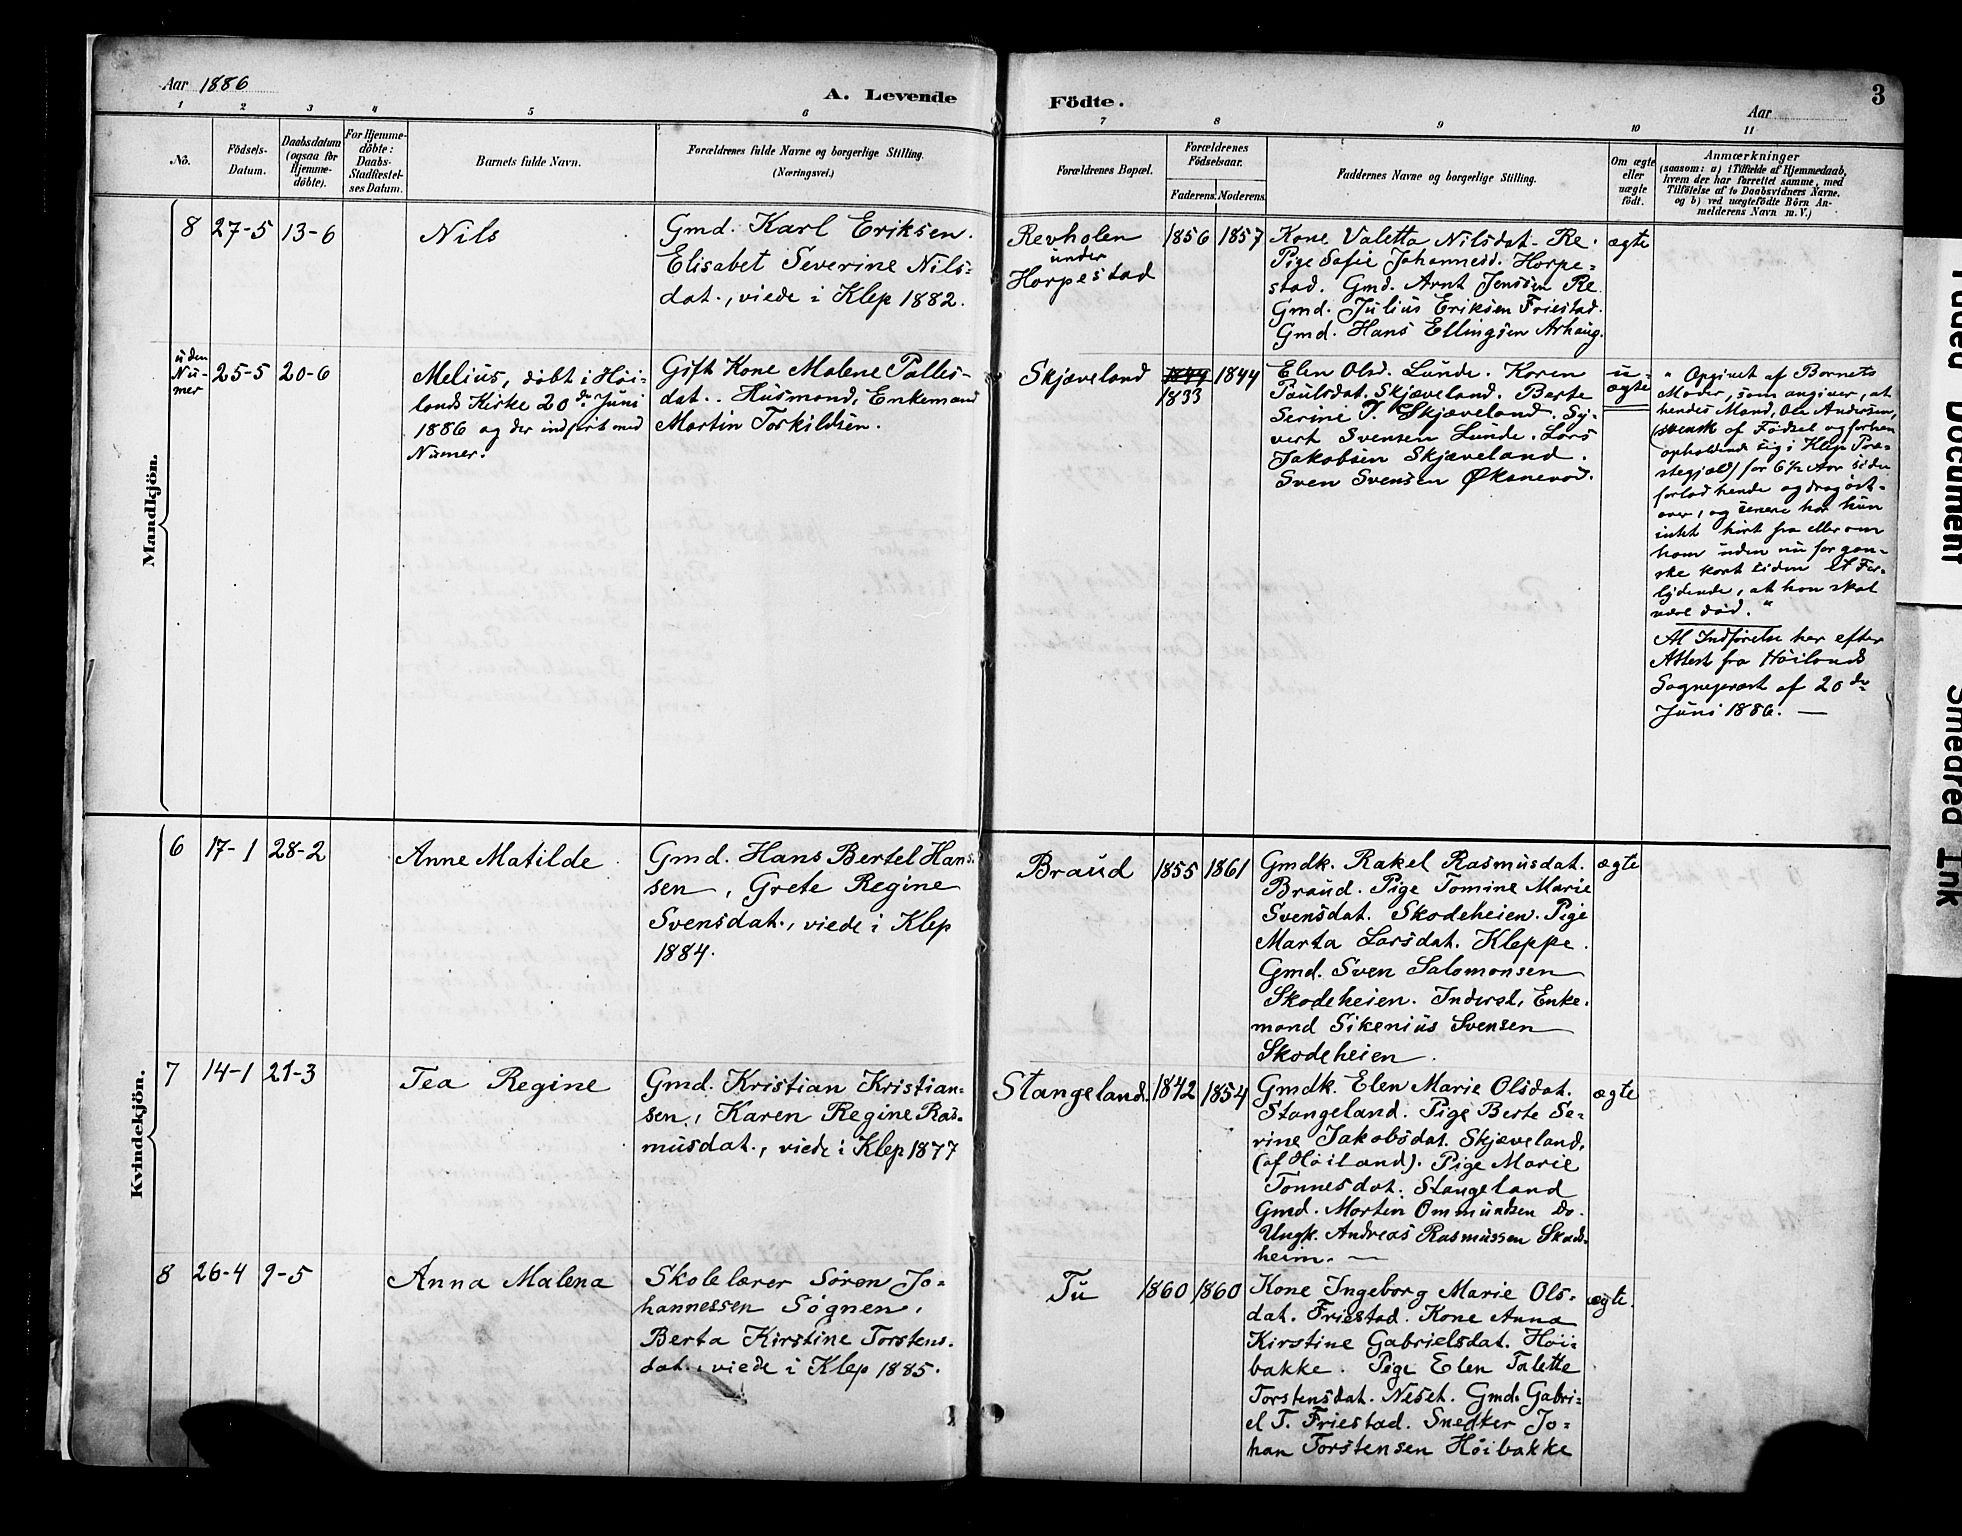 Aar 1886
A. Levende
Födte.
Aar
3
1 2 3 4 5 6 7 8 9 10 11
Nö.
Födsels-
Datum.
Daabsdatum
(ogsaa for
Hjemme-
döbte).
For Hjemme-
döbte:
Daabs-
Stadfæstel-
ses Datum.
Barnets fulde Navn.
Forældrenes fulde Navne og borgerlige Stilling.
(Næringsvei.)
Forældrenes Bopæl.
Forældrenes
Födselsaar.
Faderens. Moderens.
Faddernes Navne og borgerlige Stilling.
Om ægte
eller
uægte
født.
Anmærkninger
(saasom: a) i Tilfælde af Hjemmedaab,
hvem der har forrettet samme, med
Tilføielse af to Daabsvidners Navne.
og b) ved uægtefødte Börn An-
melderens Navn m. V.)
Mandkjön.
8 27-5 13-6
Nils
Gmd. Karl Eriksen.
Elisabet Severine Nils-
dat., viede i Klep 1882.
Revholen
under
Horpestad
1856 1857
Kone Valetta Nilsdat. Re.
Pige Sofie Johannesd. Horpe-
stad. Gmd. Arnt Jenssen Re.
Gmd. Julius Eriksen Friestad.
Gmd. Hans Ellingsen Arhaug.
ægte
uden
Nu-
mer
25-5 20-6
Melius, døbt i Høi-
lands Kirke 20de Juni
1886 og der indført med
Numer.
Gift Kone Malene Palles-
dat.. Husmand, Enkemand
Martin Torkildsen.
Skjæveland
1844 1844
1833
Elen Olsd. Lunde. Karen
Paulsdat. Skjæveland. Berte
Serine T. Skjæveland. Sy-
vert Svensen Lunde. Lars
Jakobsen Skjæveland.
Sven Svensen Øksnevad.
u-
ægte
" Opgivet af Barnets
Moder, som angiver, at
hendes Mand, Ole Andersen,
(svensk af Fødsel og forhen
opholdende sig i Klep Præ-
stegjæld) for 6½ Aar siden
forlod hende og drog øst-
over, og senere har hun
intet hørt fra eller om
ham uden nu for gan-
ske kort siden et For-
lydende, at han skal
være død. "
Al Indførelse her efter
Attest fra Høilands
Sognepræst af 20de
Juni 1886. —
Kvindekjön.
6 17-1 28-2
Anne Matilde
Gmd. Hans Bertel Han-
sen, Grete Regine
Svensdat., viede i Klep
1884.
Braud
1855 1861
Gmdk. Rakel Rasmusdat.
Braud. Pige Tomine Marie
Svensdat. Skodeheien. Pige
Marta Larsdat. Kleppe.
Gmd. Sven Salomonsen
Skodeheien. Inderst, Enke-
mand Sikenius Svensen
Skodeheien.
ægte
7 14-1 21-3
Tea Regine
Gmd. Kristian Kristian-
sen, Karen Regine Ras-
musdat., viede i Klep 1877
Stangeland.
1842 1854
Gmdk. Elen Marie Olsdat.
Stangeland. Pige Berte Se-
rine Jakobsdat. Skjæveland,
(af Høiland). Pige Marie
Tonnesdat. Stangeland
Gmd. Morten Ommundsen do.
Ungk. Andreas Rasmussen Skads-
heim. —
ægte
8 26-4 9-5
Anna Malena
Skolelærer Søren Jo-
hannessen Sognen,
Berta Kirstine Torstens-
dat., viede i Klep 1885.
Tu
1860 1860
Kone Ingeborg Marie Ols-
dat. Friestad. Kone Anna
Kirstine Gabrielsdat. Høi-
bakke. Pige Elen Talette
Torstensdat. Neset. Gmd. Gabri-
el T. Friestad. Snedker Jo-
han Torstensen Høibakke
ægte.
Faded Document
Smeared Ink